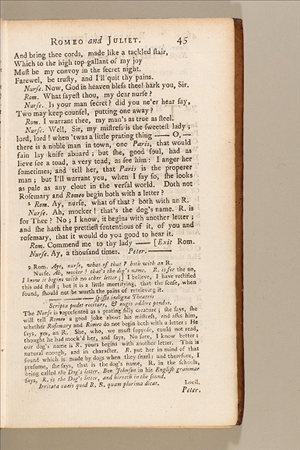 ROMEO and JULIET. 45
And bring thee cords, made like a tackled stair,
Which to the high top-gallant of my joy
Must be my convoy in the secret night.
Farewel, be trusty, and I'll quit thy pains.
Nurse. Now, God in heaven bless thee! hark you, Sir.
Rom. What sayest thou, my dear nurse?
Nurse. Is your man secret? did you ne'er hear say,
Two may keep counsel, putting one away?
Rom. I warrant thee, my man's as true as steel.
Nurse. Well, Sir, my mistress is the sweetest lady;
lord, lord! when 'twas a little prating thing — O, —
there is a noble man in town, one Paris, that would
fain lay knife aboard; but she, good soul, had as
lieve see a toad, a very toad, as see him: I anger her
sometimes; and tell her, that Paris is the properer
man; but I'll warrant you, when I say so, she looks
as pale as any clout in the versal world. Doth not
Rosemary and Romeo begin both with a letter?
Rom. Ay, nurse, what of that? both with an R.
Nurse. Ah, mocker! that's the dog's name. R. is
for Thee? No; I know, it begins with another letter;
and she hath the prettiest sententious of it, of you and
rosemary, that it would do you good to hear it.
Rom. Commend me to thy lady — [Exit Rom.
Nurse. Ay, a thousand times. Peter. —
Rom. Aye, nurse, what of that? both with an R.
Nurse. Ah, mocker! that's the dog's name. R. is for the no,
I know it begins with no other letter;] I believe, I have rectified
this odd stuff; but it is a little mortifying, that the sense, when
found, should not be worth the pains of retrieving it.
— spissis indigna Theatris
Scripta pudet recitare, & nugis addere pondus.
The Nurse is represented as a prating silly creature; she says, she
will tell Romeo a good joke about his mistress, and asks him,
whether Rosemary and Romeo do not begin both with a letter: He
says, yes, an R. She, who, we must suppose, could not read,
thought he had mock'd her, and says, No sure, I know better:
our dog's name is R. yours begins with another letter. This is
natural enough, and in character. R. put her in mind of that
sound which is made by dogs when they snarl; and therefore, I
presume, she says, that is the dog's name, R. in the schools,
being called the Dog's letter. Ben Johnson in his English grammar
says, R. is the Dog's letter, and hirreth in the sound.
Irritata canis quod R. R. quam plurima dicat. Lucil.
Peter.